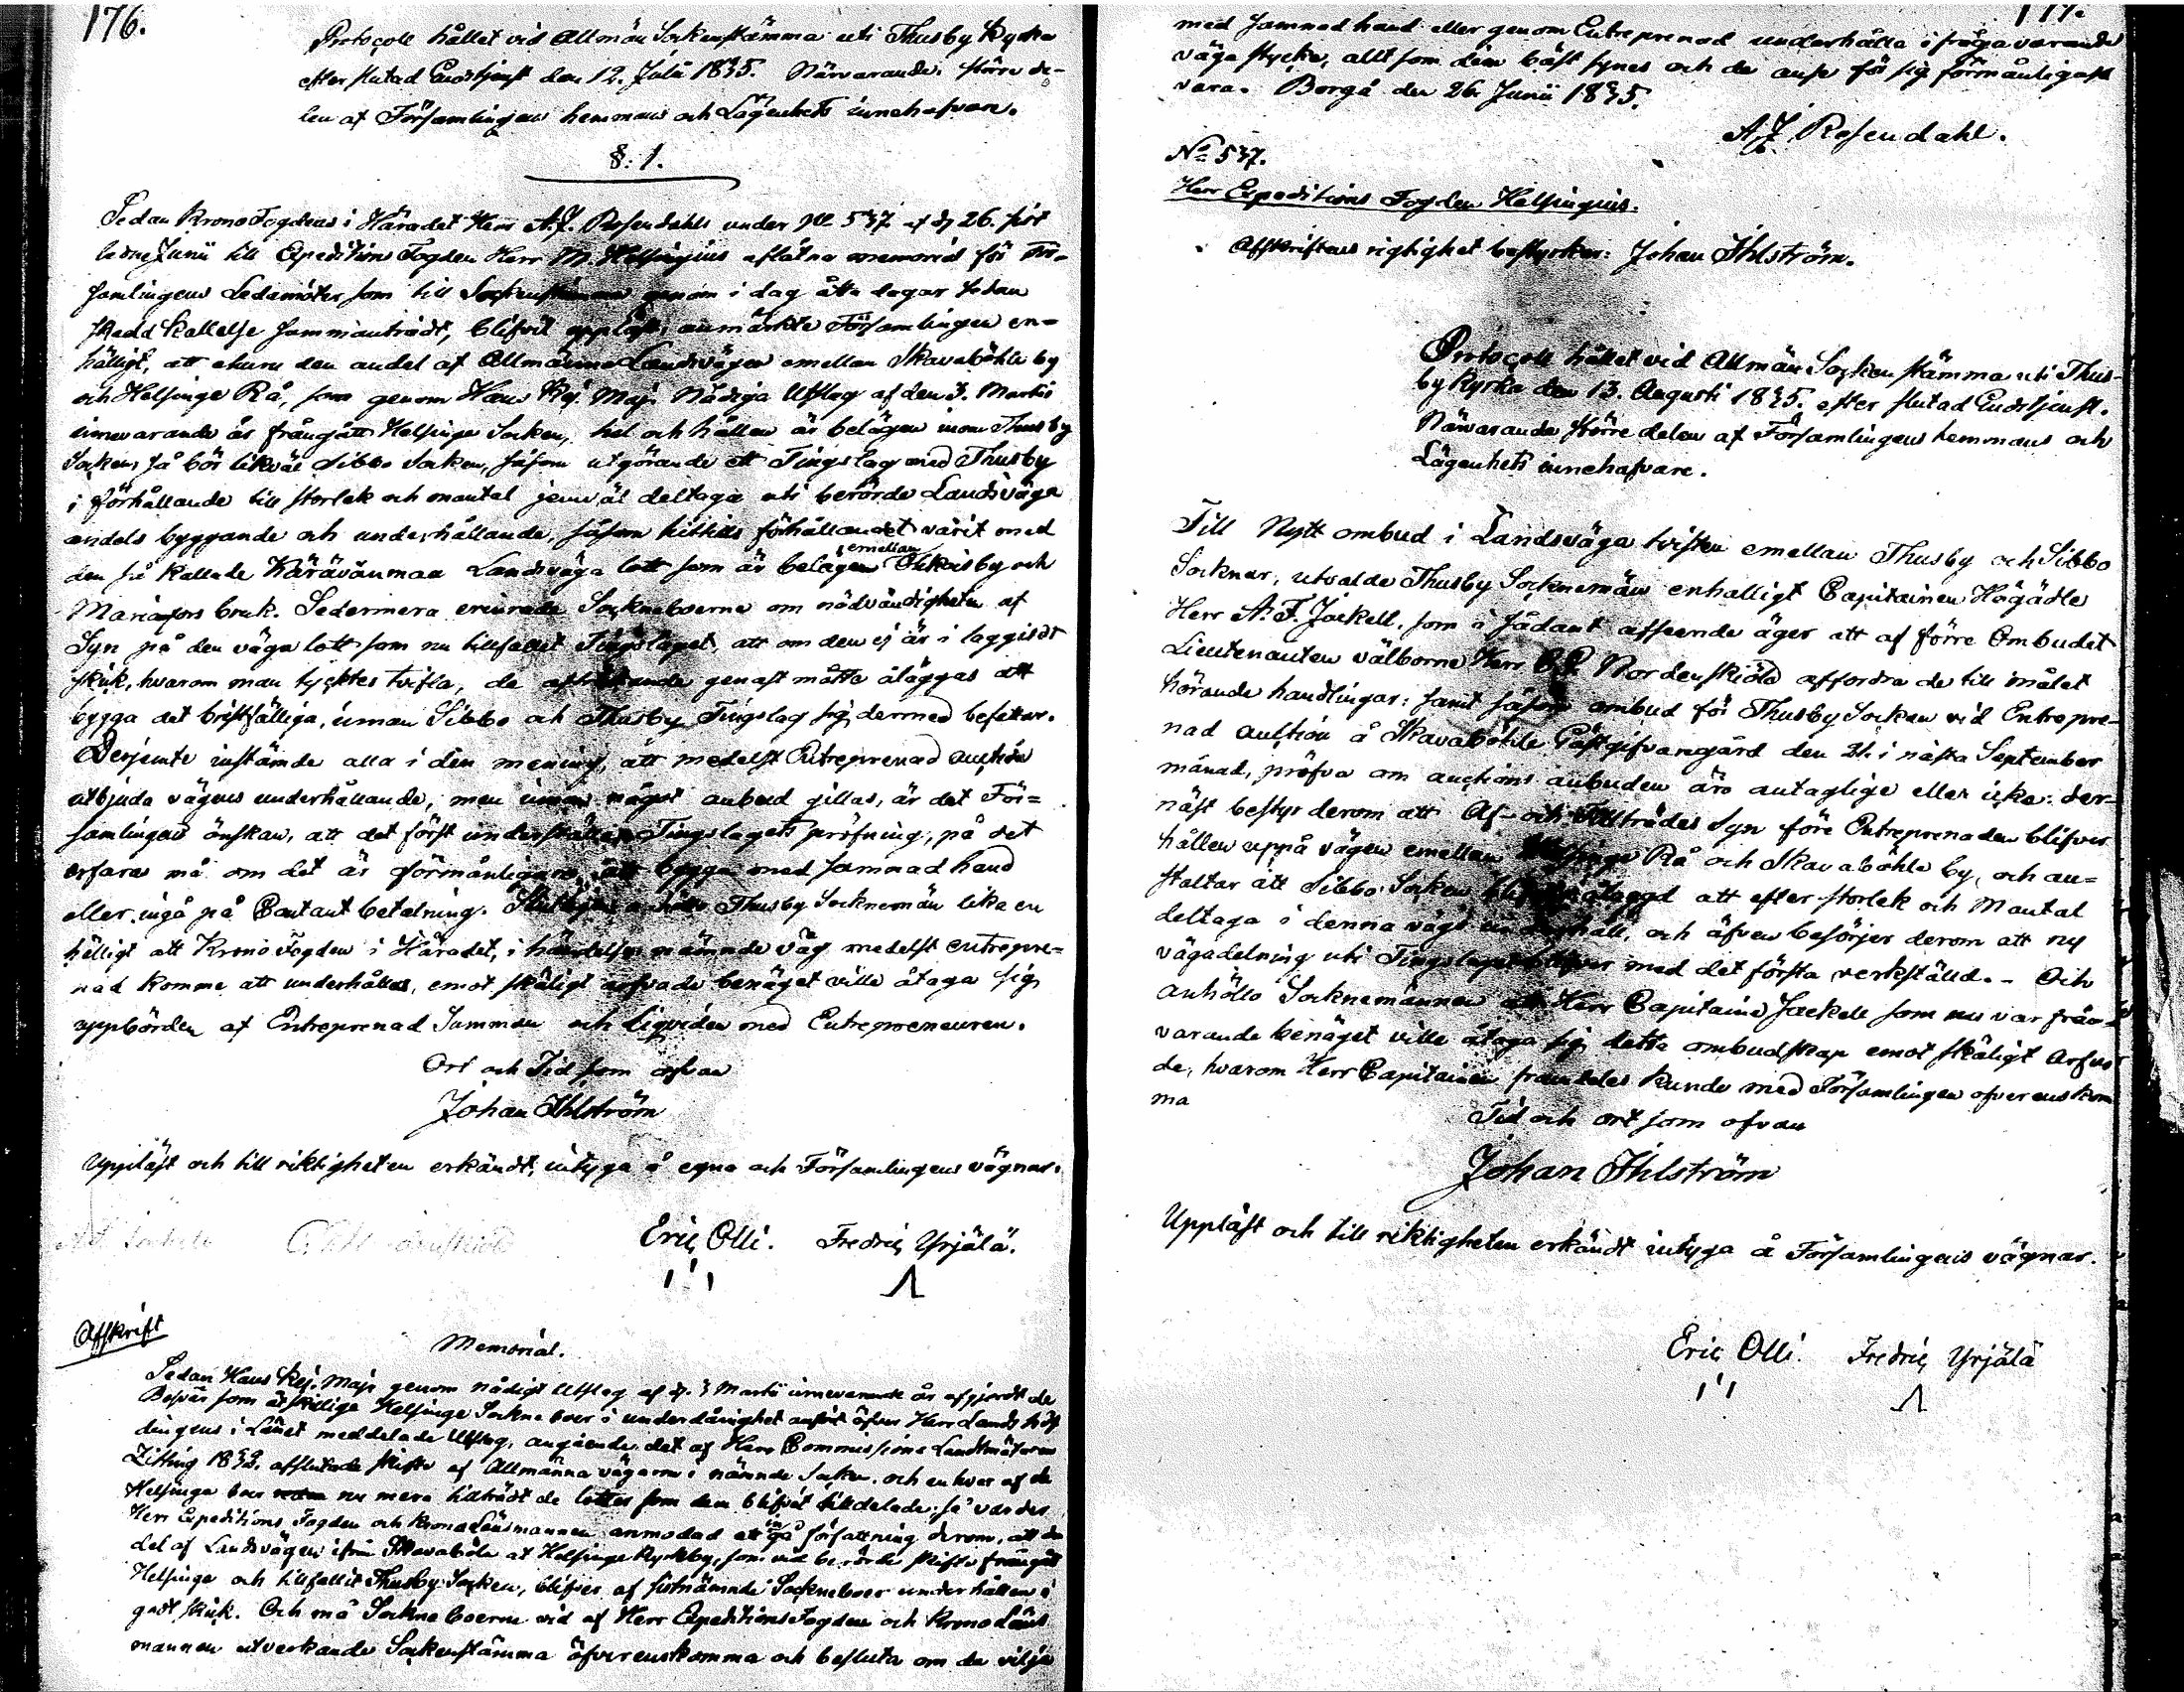 176.
Protocoll hållet vid Allmän Sockenstämma uti Thusby Kyrka
efter slutad Gudstjenst den 12. Julii 1835. Närvarande större de-
len af Församlingens hemmans och Lägenhets innehafvare.
§: 1.
Sedan Krono Fogdens i Häradet Herr A. J. Rosendahls under No 537 af d. 26. sist
ledne Junii till Expeditions Fogden Herr M. Helsingius aflåtna memorial för För-
samlingens Ledamöter som till Sockenstämma genom i dag åtta dagar sedan
skedd Kallelse sammanträdt, blifvit uppläst; anmärkte Församlingen en-
hälligt, att ehuru den andel af Allmänna Landsvägen emellan Skavaböhle by
och Helsinge Rå, som genom Hans Kej. Maj. Nådiga Utslag af den 3. Martii
innevarande år frångått Helsinge Socken, hel och hållen är belägen inom Thusby
Socken, så bör likväl Sibbo Socken, såsom utgörande ett Tingslag med Thusby
i förhållande till storlek och mantal jemväl deltaga uti berörde Landsväga
andels byggande och underhållande, såsom hittills förhållandet varit med
den så kallade Kärävänmaa Landsväga lott som är belägen emellan Ohkois by och
Mariæfors bruk. Sedermera erinrade Sockneboerne om nödvändigheten af
Syn på den väga lott som nu tillfallit Tingslaget, att om den ej är i laggildt
skick, hvarom man tycktes tvifla, de afträdande genast måtte åläggas att
bygga det bristfälliga, innan Sibbo och Thusby Tingslag sig dermed befattar.
Derjemte instämde alla i den mening, att medelst Entreprenad auction
utbjuda vägens underhållande, men innan något anbud gillas, är det För=
samlingens önskan, att det först underställes Tingslagets pröfning, på det
erfaras må om det är förmånligare att bygga med samnad hand
eller ingå på Contant betalning. Slutligen anhöllo Thusby Socknemän lika en
hälligt att Krono Fogden i Häradet, i händelse nämnde väg medelst entrepre=
nad komme att underhållas, emot skäligt arfvode benäget ville åtaga sig
uppbörden af Entreprenad Summan och liqviden med Entrepreneuren.
Ort och Tid som ofvan
Johan Ihlström
Uppläst och till riktigheten erkändt, intyga å egne och Församlingens vägnar.
Eric Olli. Fredric Yrjälä.
Afskrift
Memorial.
Sedan Hans Kej. Maj. genom nådigt Utslag af d. 3 Martii innevarande år afgjordt de
Besvär som åtskillige Helsinge Sockne boer i underdånighet anfört öfver Herr Lands höf
dingens i Länet meddelade Utslag, angående det af Herr Commissions Landtmätaren
Zitting 1832. afslutade skifte af Allmänna vägarne i nämnde Socken, och en hvar af de
Helsinge boer nu mera tillträdt de lotter som dem blifvit tilldelade; så varder
Herr Expeditions Fogden och Krono Länsmannen anmodad att ingå författning derom, att den
del af Landsvägen ifrån Skavaböle at Helsinge Kyrkby, som vid berörde skifte frångått
Helsinge och tillfallit Thusby Socken, blifver af sistnämnde Sockneboer underhållen i
godt skick. Och må Sockne boerne vid af Herr ExpeditionsFogden och Krono Läns
mannen utverkande Sockenstämma öfverenskomma och besluta om de vilja
177.
med samnad hand eller genom Entreprenad underhålla i fråga varande
väga stycke, allt som dem bäst synes och de anse för sig förmånligast
vara. Borgå den 26. Junii 1835.
A. J. Rosendahl.
No 537.
Herr Expeditions Fogden Helsingius.
Afskriftens rigtighet bestyrker: Johan Ihlström.
Protocoll hållet vid Allmän Sockenstämma uti Thus-
by Kyrka den 13. Augusti 1835. efter slutad Gudstjenst.
Närvarande större delen af Församlingens hemmans och
Lägenhets innehafvare.
Till Nytt ombud i Landsväga tvisten emellan Thusby och Sibbo
Socknar, utvalde Thusby Socknemän enhälligt Capitainen Högädle
Herr A. F. Jackell, som i sådant afseende äger att af förre Ombudet
Lieutenanten välborne Herr Nordenskiöld affordra de till målet
hörande handlingar; samt såsom ombud för Thusby Socken vid Entrepre-
nad auction å Skavaböhle Gästgifvaregård den 21. i nästa September
månad, pröfva om auctions anbuden äro antaglige eller icke: der-
näst bestyr derom att Af- och Tillträdes Syn före Entreprenaden blifver
hållen uppå vägen emellan Helsinge Rå och Skavaböhle by, och an=
staltar att Sibbo Socken blifver ålagd att efter storlek och Mantal
deltaga i denna vägs underhåll, och äfven besörjer derom att ny
vägadelning uti Tingslaget blifver med det första verkställd. - Och
anhöllo Socknemännen att Herr Capitaine Jackell som nu var från-
varande benäget ville åtaga sig detta ombudskap emot skäligt Arfvo
de, hvarom Herr Capitainen framdeles kunde med Församlingen öfverenskom
ma
Tid och ort som ofvan
Johan Ihlström
Uppläst och till riktigheten erkändt intyga å Församlingens vägnar.
Eric Olli. Fredric Yrjälä